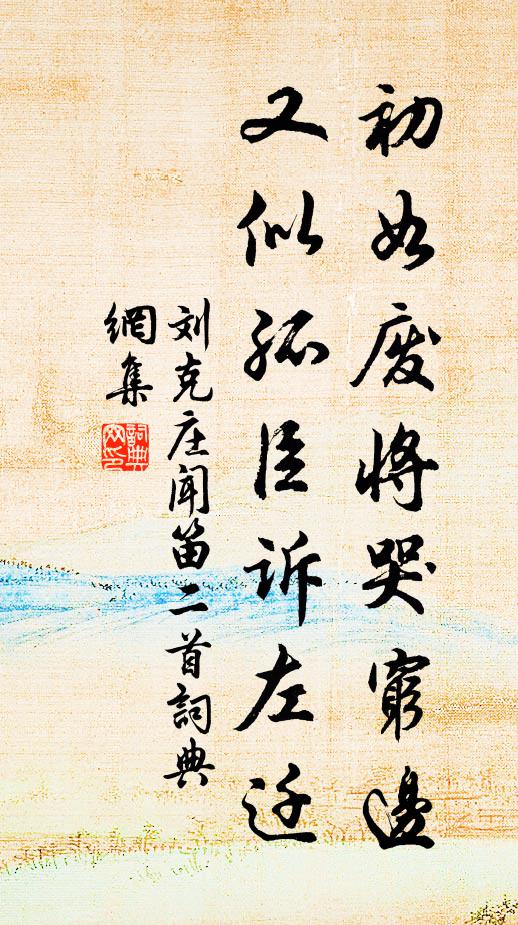 初如废将哭窮邊
又似孤臣诉左迁
刘克庄闻笛二首詞典
網集
詞典